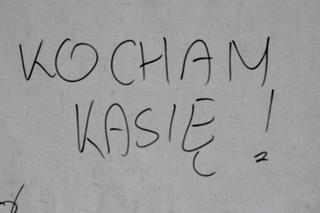 KOCHAM
KASIĘ!